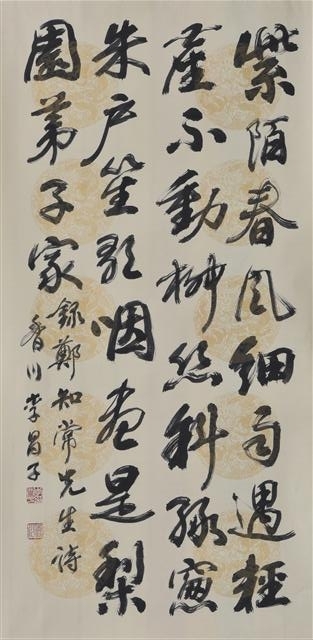 紫陌春風細雨過輕
塵不動柳絲斜綠窓
朱戶笙歌咽盡是梨
園弟子家
錄鄭知常先生詩
香川李昌子